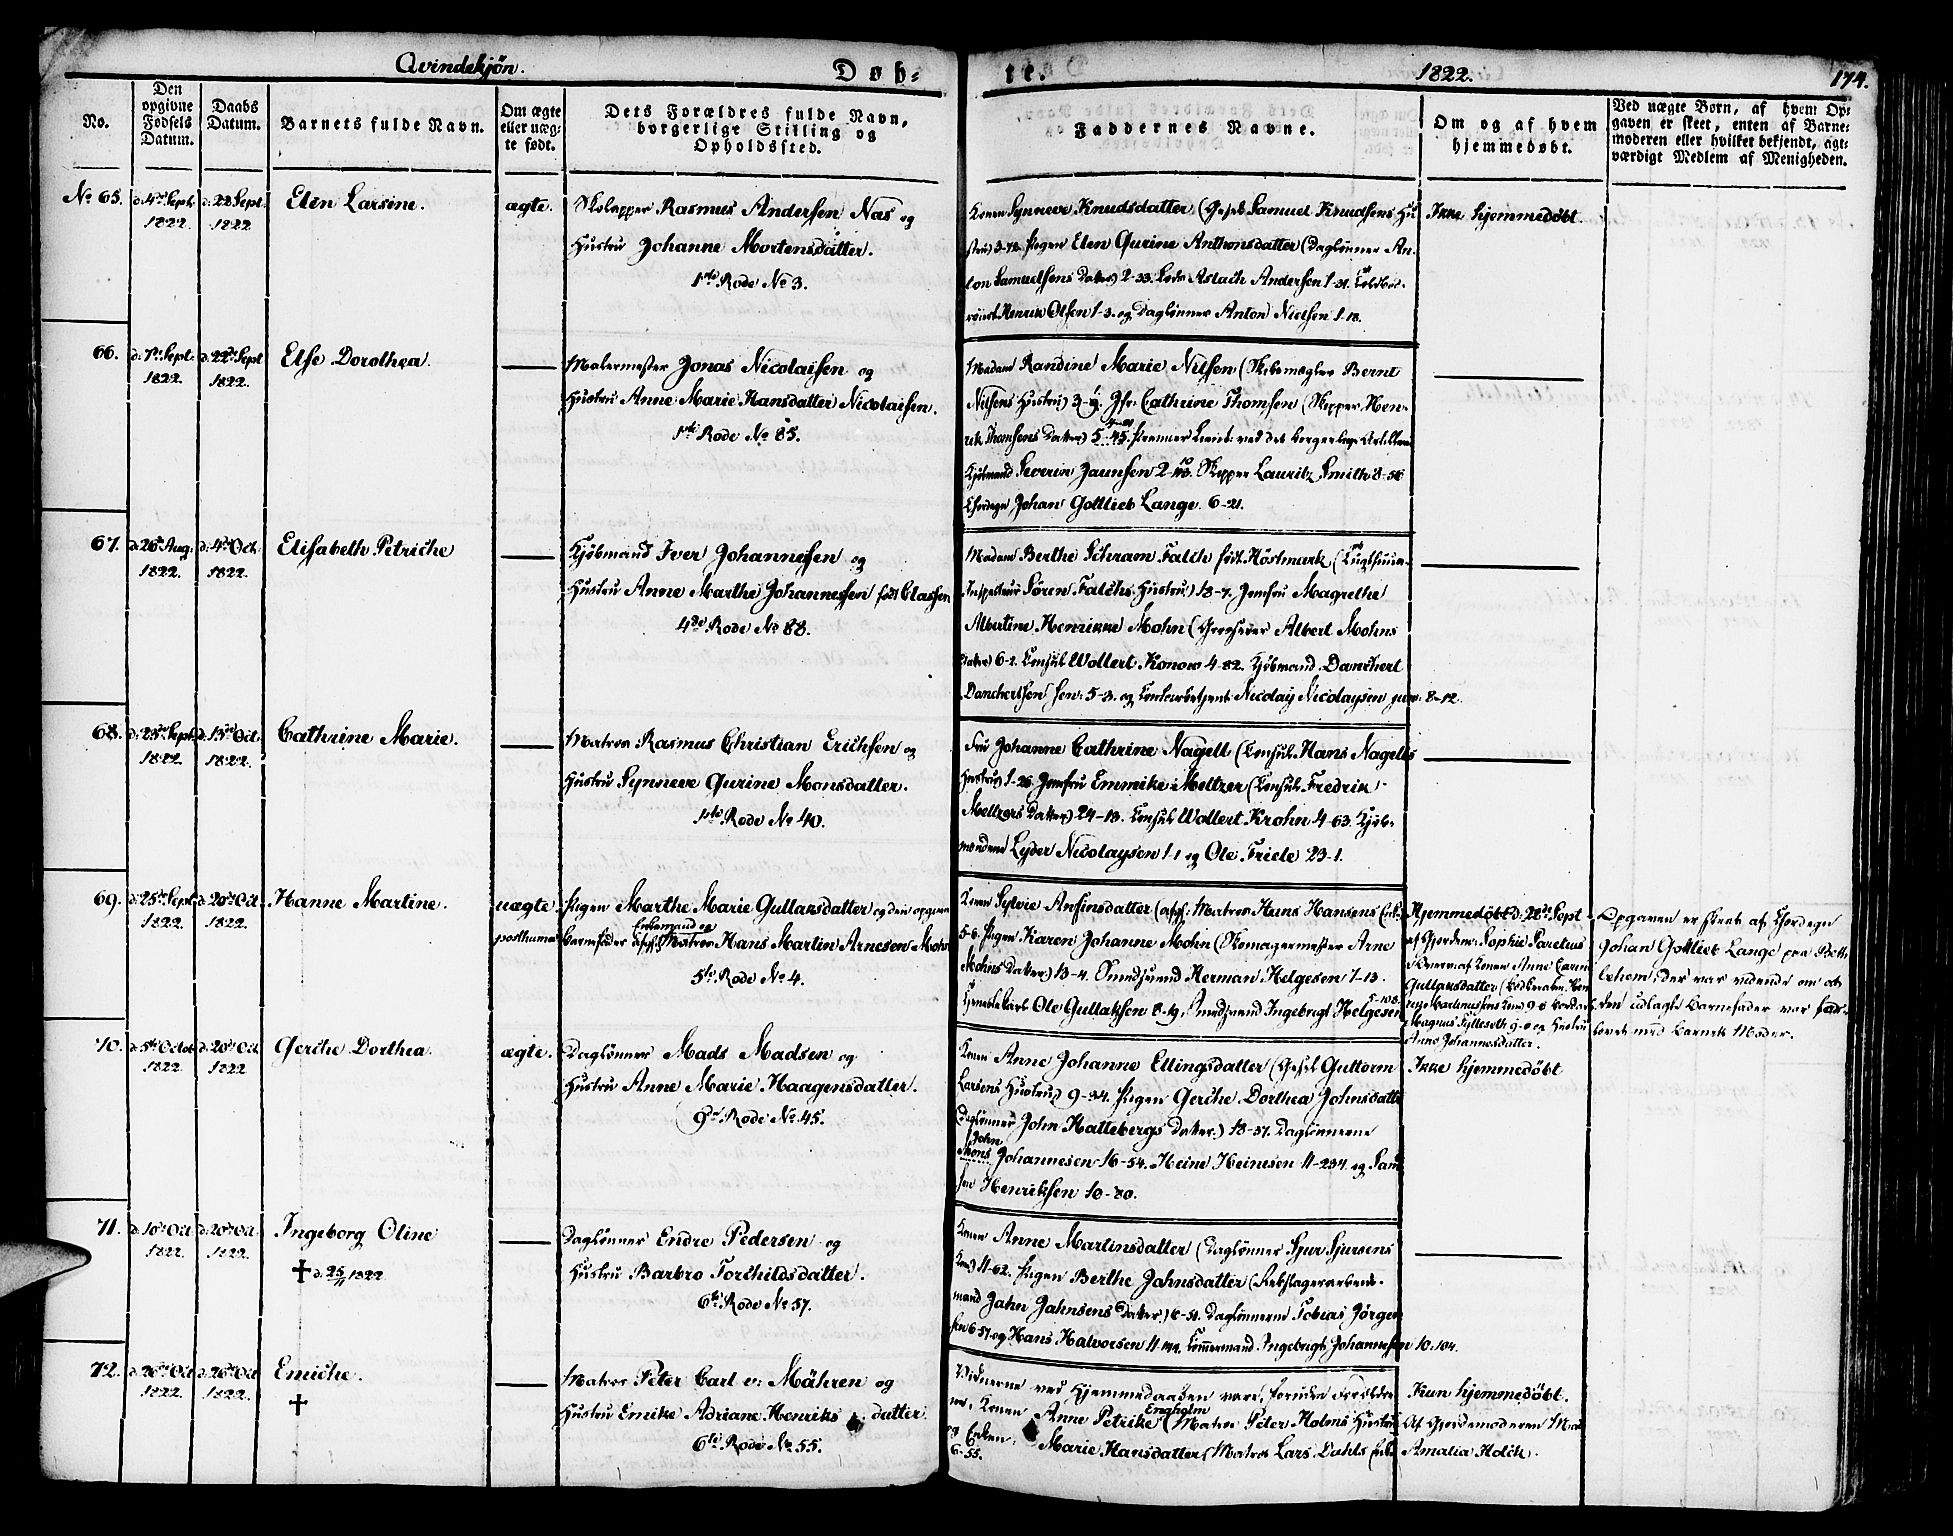 Qvindekjøn.
Døb-
te.
1822.
174.
No.
Den opgivne Fødsels Datum.
Daabs Datum.
Barnets fulde Navn.
Om ægte eller uægte født.
Dets Forældres fulde Navn, borgerlige Stilling og Opholdssted.
Faddernes Navne.
Om og af hvem hjemmedøbt.
Ved uægte Børn, af hvem Opgaven er skeet, enten af Barnemoderen eller hvilket bekjendt, agtværdigt Medlem af Menigheden.
No 65.
d. 4de Sept. 1822.
d. 22 Sept. 1822
Elen Larsine.
ægte.
Skolapper Rasmus Andersen Næs og
Hustru Johanne Mortensdatter.
1ste Rode No 3.
Konen Synneve Knudsdatter (Gesel Samuel Knudsens Hu
stru) 3-72. Pigen Elen Gurine Anthonsdatter (Dagløner An-
ton Samuelsens Datter) 2-33. Aslach Andersen 1-31.
Henrik Olsen 1-3. og Dagløner Anton Nielsen 1-18.
Ikke hjemmedøbt.
66.
d. 7de Sept. 1822.
d. 22de Sept 1822.
Else Dorothea.
Malermester Jonas Nicolaisen og
Hustru Anne Marie Hansdatter Nicolaisen.
1ste Rode No 85.
Madam Randine Marie Nilsen (Skibsmægler Bernt
Nilsens Hustru) Jfr. Cathrine Thomsen (Skipper Hen-
rik Thomsens Datter) 5-45. ved det borgerlige
Kjøbmand Severin Jaunsen 2-113. Skipper Lauritz Smith 8-56
Chordegn Johan Gottlieb Lange. 6-21.
67.
d. 26de Aug. 1822.
d. 4de Oct. 1822.
Elisabeth Petriche
Kjøbmand Iver Johannessen og
Hustru Anne Marthe Johannessen født Clausen
4de Rode No 88.
Madam Berthe Schram Falch født Höstmark (Tugthuus-
Inspecteur Sören Falchs Hustru) 18-7. Jomfru Magrethe
Albertine Henrikke Mohn (Grosserer Albert Mohns
Datter) 6-2. Consul Wollert Konow 4-82. Kjøbmand Danchert
Danchertsen sen: 5-3. og Nicolay Nicolaysen jun: 8-12.
68.
d. 23de Sept. 1822.
d. 13de Oct. 1822.
Cathrine Marie.
Matros Rasmus Christian Erichsen og
Hustru Synneve Gurine Monsdatter.
1ste Rode No 40.
Fru Johanne Cathrine Nagell (Consul Hans Nagells
Hustru) 1-26. Jomfru Emmike Meltzer (Consul Fredrik
Meltzers Datter) 24-13. Consul Wollert Krohn 4-63. Kjøb-
mændene Lyder Nicolaysen 1-1 og Ole Friele 23-1.
69.
d. 25de Sept. 1822.
d. 20de Oct. 1822.
Hanne Martine.
uægte.
posthuma
Pigen Marthe Marie Gullaksdatter og den opgivne
Enkemand og
Barnefader afgl: Matros Hans Martin Arnesen Mohn
5te Rode No 4.
Konen Sylvie Ansinsdatter (afgl: Matros Hans Hansens Enke)
5-6. Pigen Karen Johanne Mohn (Skomagermester Arne
Mohns Datter) 13-4. Smedsvend Herman Helgesen 1-13.
Ole Gullaksen 8-19. Smedsvend Ingebrigt Helgesen
5-108.
Hjemmedøbt d: 28de Sept
af Gjordem: Sophie Paretius
Konen Anne Carin
Gullaksdatter
Magnus Sylleseth 9-8 og Hustru
Anne Johannesdatter.
Opgaven er skeet af Chordegn
Johan Gottlieb Lange
der var vidende om at
den udlagte Barnefader var
lovet med Barnets Moder.
70.
d. 5te Octob. 1822.
d. 20de Oct. 1822
Gerche Dorthea.
ægte.
Dagløner Mads Madsen og
Hustru Anne Marie Haagensdatter.
9de Rode No 45.
Konen Anne Johanne Ellingsdatter (Gesel Guttorm
Larsens Hustru) 9-34. Pigen Gerche Dorthea Johnsdatter
(Dagløner John Hattebergs Datter.) 18-57. Daglønerne
John
Mons Johannesen 16-54. Heine Heinesen 11-234. og Sam
sen Henriksen 10-80.
Ikke hjemmedøbt
71.
d. 10de Oct. 1822.
d. 20de Oct. 1822.
Ingeborg Oline
✝ d. 25/11 1822
Dagløner Endre Pedersen og
Hustru Barbro Torchildsdatter.
6te Rode No 57.
Konen Anne Martinsdatter (Dagløner Sjur Sjursens
Kone) 11-62. Pigen Berthe Jahnsdatter (Rebslagerarbeids-
mand Jahn Jahnsens Datter.) 6-51. Daglønerne Tobias Jörgen
sen 6-57. og Hans Halvorsen 11-144. Tømmermand Ingebrigt Johannesen 10-104.
72.
d. 26de Oct 1822.
d. 26de Oct 1822.
Emiche.
✝
Matros Peter Carl v: Mähren og
Hustru Emike Adriane Henriksdatter.
6te Rode No 55.
Vidnerne ved Hjemmedaaben vare, foruden Forældre
ne, Konen Anne Petrike Engholm (Matros Peter Holms Hustru
og Enken Marie Hansdatter (Matros Lars Dahls Enke
6-55.
Kun hjemmedøbt.
Af Gjordemoderen Mad
Amalia Holch.